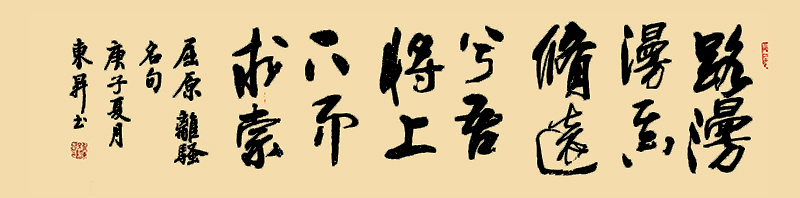 路漫
漫其
脩遠
兮吾
將上
下而
求索
屈原離騷
名句
庚子夏月
東昇书